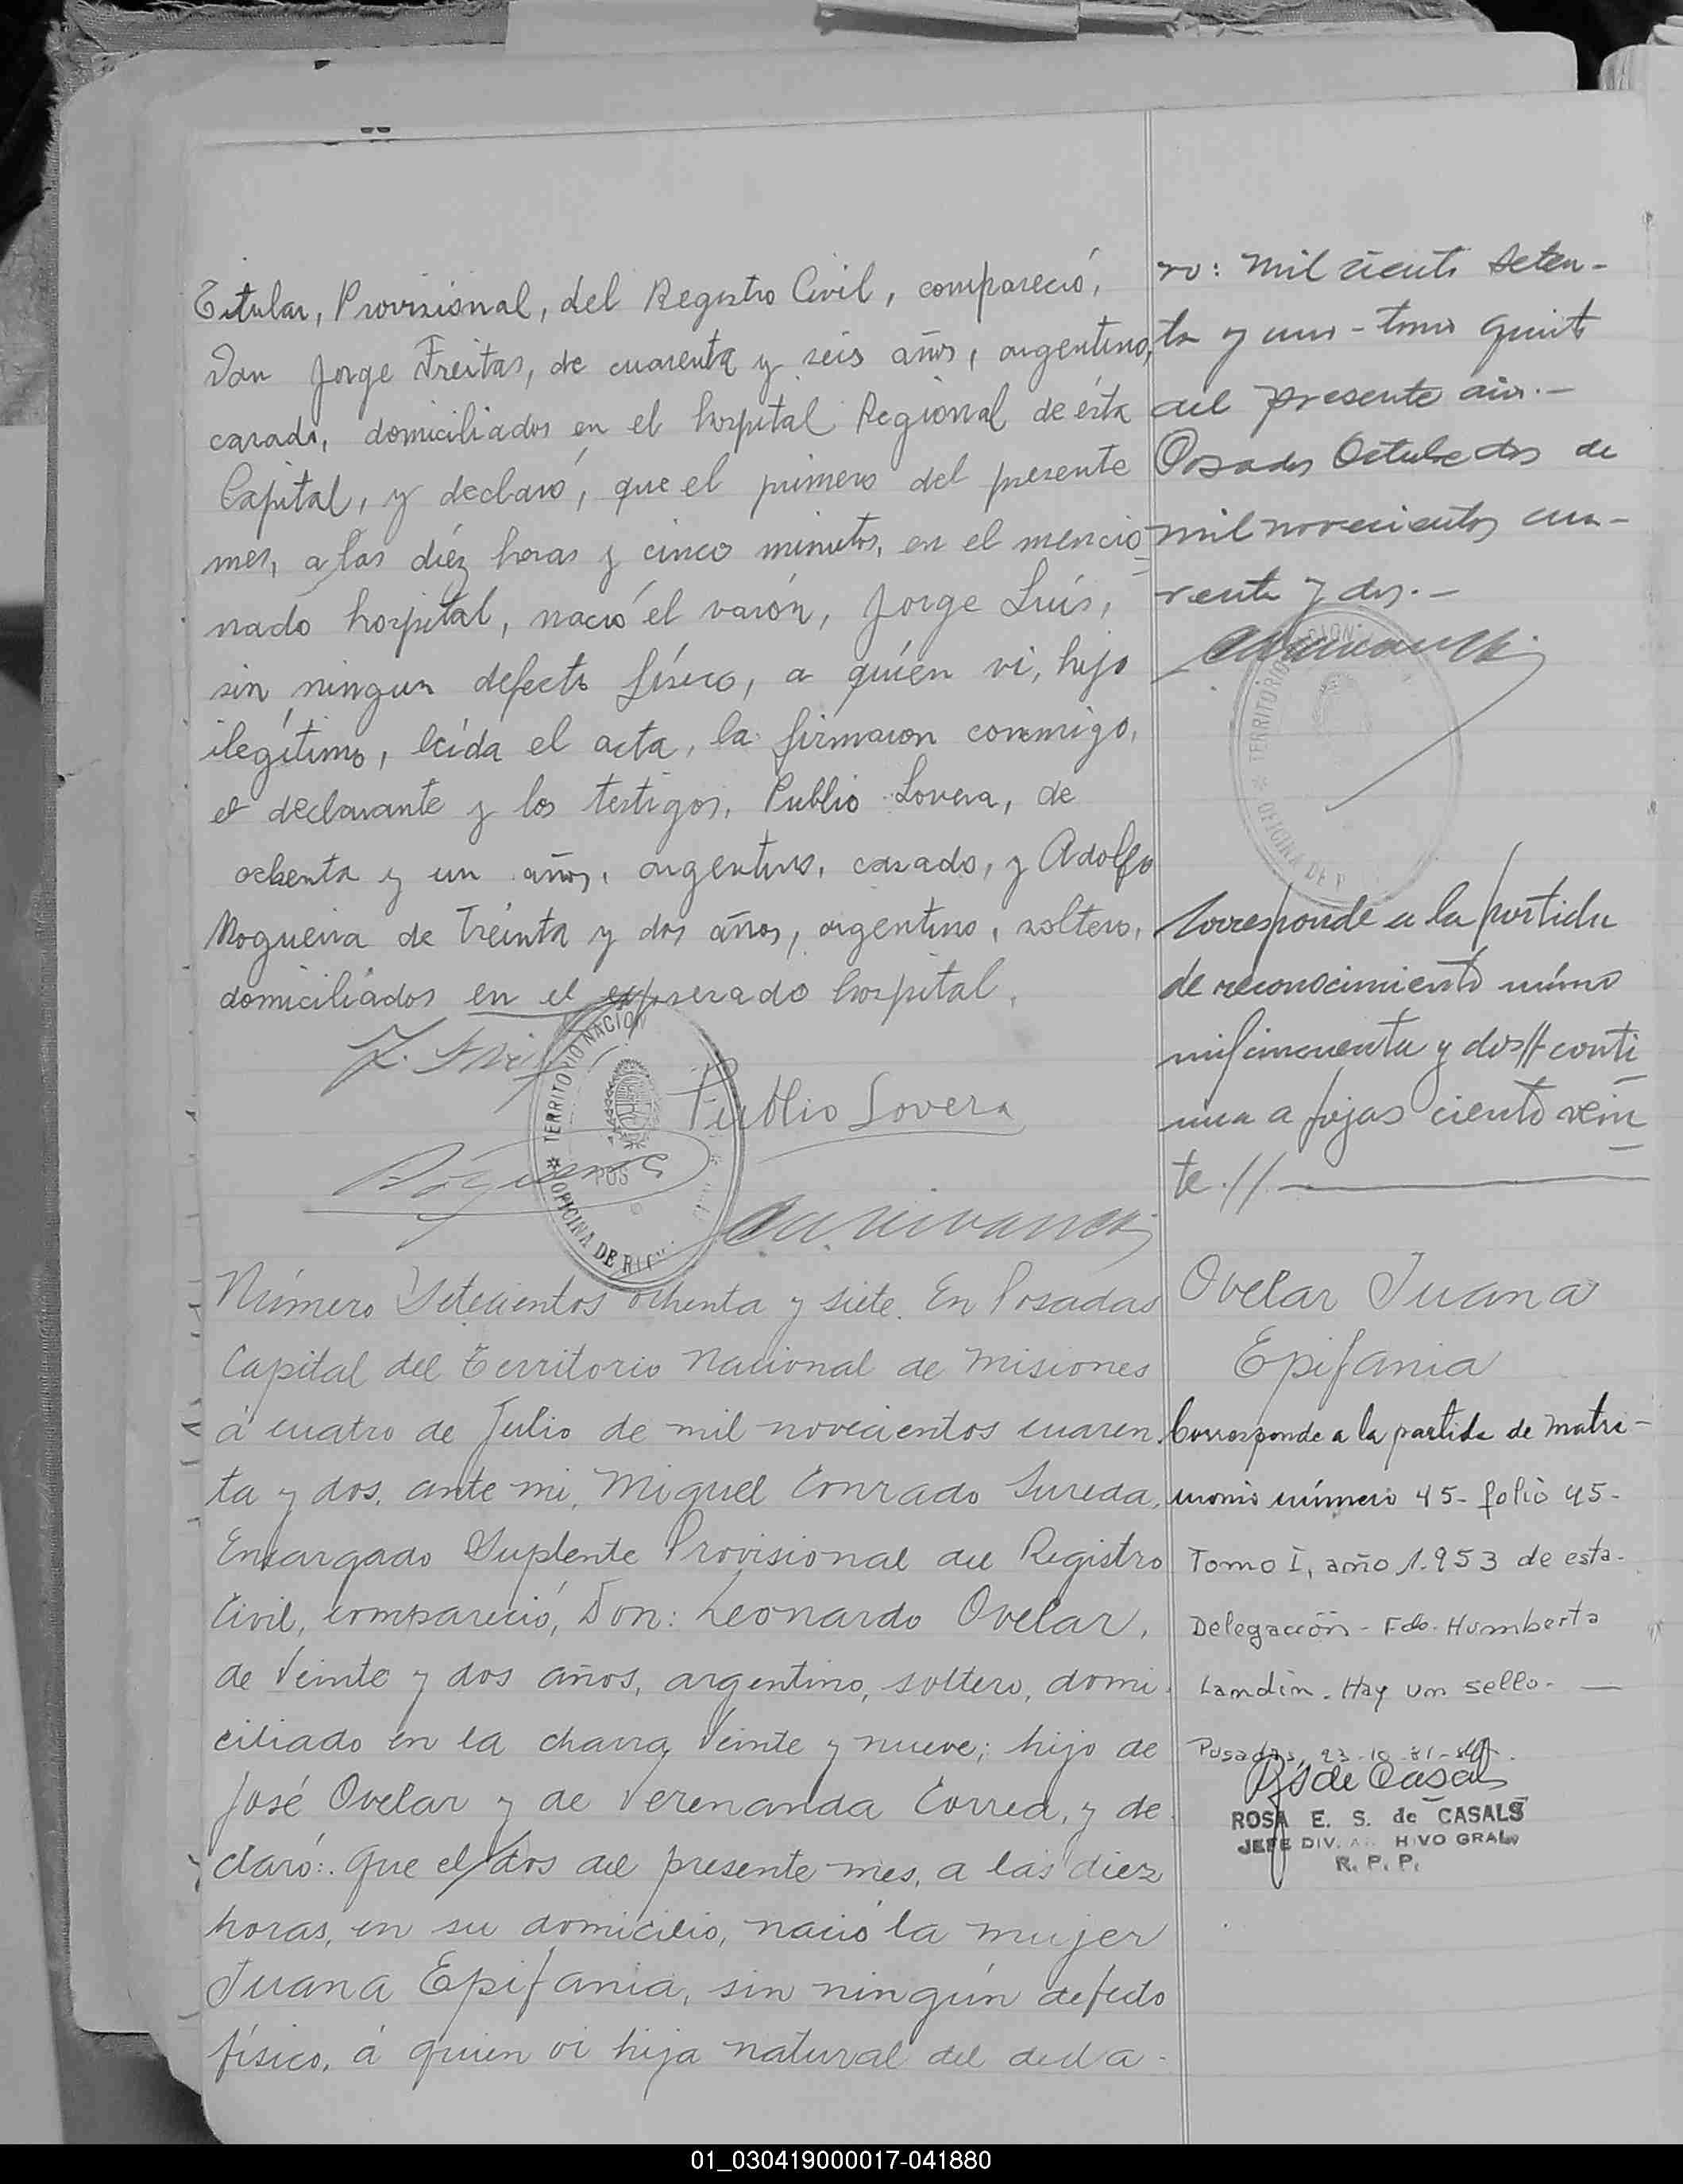 Titular, Provisional, del Registro Civil, compareció,
Don Jorge Freitas, de cuarenta y seis años, argentino,
casado, domiciliados en el hospital Regional de ésta
Capital, y declaró, que el primero del presente
mes, a las diéz horas y cinco minutos, en el mencio
nado hospital, nació el varón, Jorge Luís,
sin ningun defecto físico, a quíen vi, hijo
ilegítimo, leída el acta, la firmaron conmigo,
el declarante y los testigos, Publio Lovera, de
ochenta y un años, argentino, casado, y Adolfo
Nogueira de treinta y dos años, argentino, soltero,
domiciliados en el expresado hospital.
Publio Lovera
TERRITORIO NACION
POS
OFICINA DE
Número Setecientos ochenta y siete. En Posadas
Capital del Territorio Nacional de Misiones
á cuatro de Julio de mil novecientos cuaren
ta y dos, ante mi, Miguel Conrado Sureda,
Encargado Suplente Provisional del Registro
Civil, compareció, Don: Leonardo Ovelar,
de veinte y dos años, argentino, soltero, domi
ciliado en la chacra veinte y nueve; hijo de
José Ovelar y de Verenanda Correa, y de
claró: que el dos del presente mes, a las diez
horas, en su domicilio, nació la mujer
Juana Epifania, sin ningún defecto
físico, á quien vi hija natural del decla-
ro: mil ciento seten-
ta y uno - tomo quinto
del presente año.-
Posadas Octubre dos de
mil novecientos cua-
renta y dos.-
TERRITORIO
OFICINA DE P
Corresponde a la partida
de reconocimiento núme
mil cincuenta y dos// conti
nua a fojas ciento vein
te.//
Ovelar Juana
Epifania
Corresponde a la partida de matri-
monio número 45- folio 45-
Tomo I, año 1.953 de esta-
Delegación - Fdo. Humberto
Landin. Hay un sello.-
Posadas, 23-10-81-
R S de Casals
ROSA E. S. de CASALS
JEFE DIV. A HIVO GRAL.
R. P. P.
01_030419000017-041880